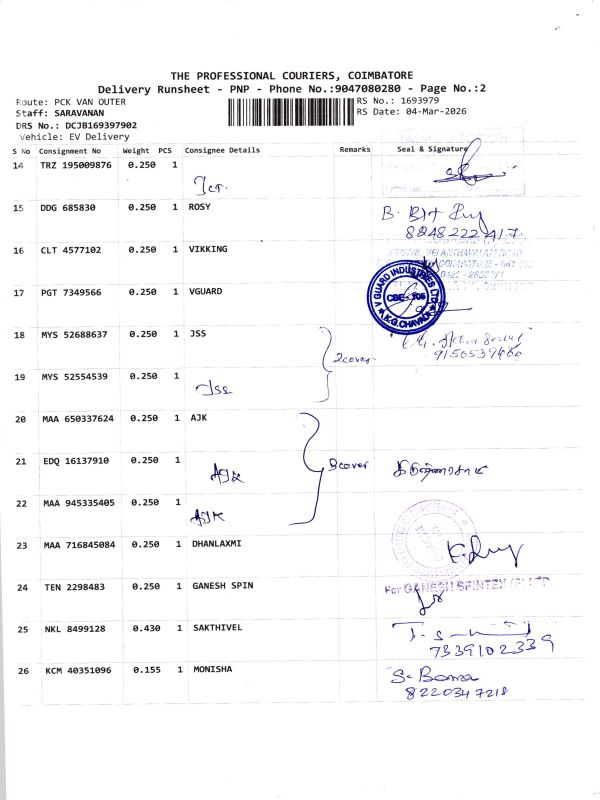 THE PROFESSIONAL COURIERS, COIMBATORE
Delivery Runsheet - PNP - Phone No.:9047080280 - Page No.:2
Route: PCK VAN OUTER RS No.: 1693979
Staff: SARAVANAN RS Date: 04-Mar-2026
DRS No.: DCJB169397902
Vehicle: EV Delivery
S No Consignment No Weight PCS Consignee Details Remarks Seal & Signature
14 TRZ 195009876 0.250 1
15 DDG 685830 0.250 1 ROSY
8248222417
16 CLT 4577102 0.250 1 VIKKING
17 PGT 7349566 0.250 1 VGUARD
V GUARD INDUSTRIES LTD
CBE-105
K.G.CHAVADI
18 MYS 52688637 0.250 1 JSS 2cover
9156539460
19 MYS 52554539 0.250 1
Jss
20 MAA 650337624 0.250 1 AJK
21 EDQ 16137910 0.250 1 3cover
AJK
22 MAA 945335405 0.250 1
AJK
23 MAA 716845084 0.250 1 DHANLAXMI
24 TEN 2298483 0.250 1 GANESH SPIN For GANESH SPINTEX (P) LTD
25 NKL 8499128 0.430 1 SAKTHIVEL
7339102339
26 KCM 40351096 0.155 1 MONISHA
8220347218